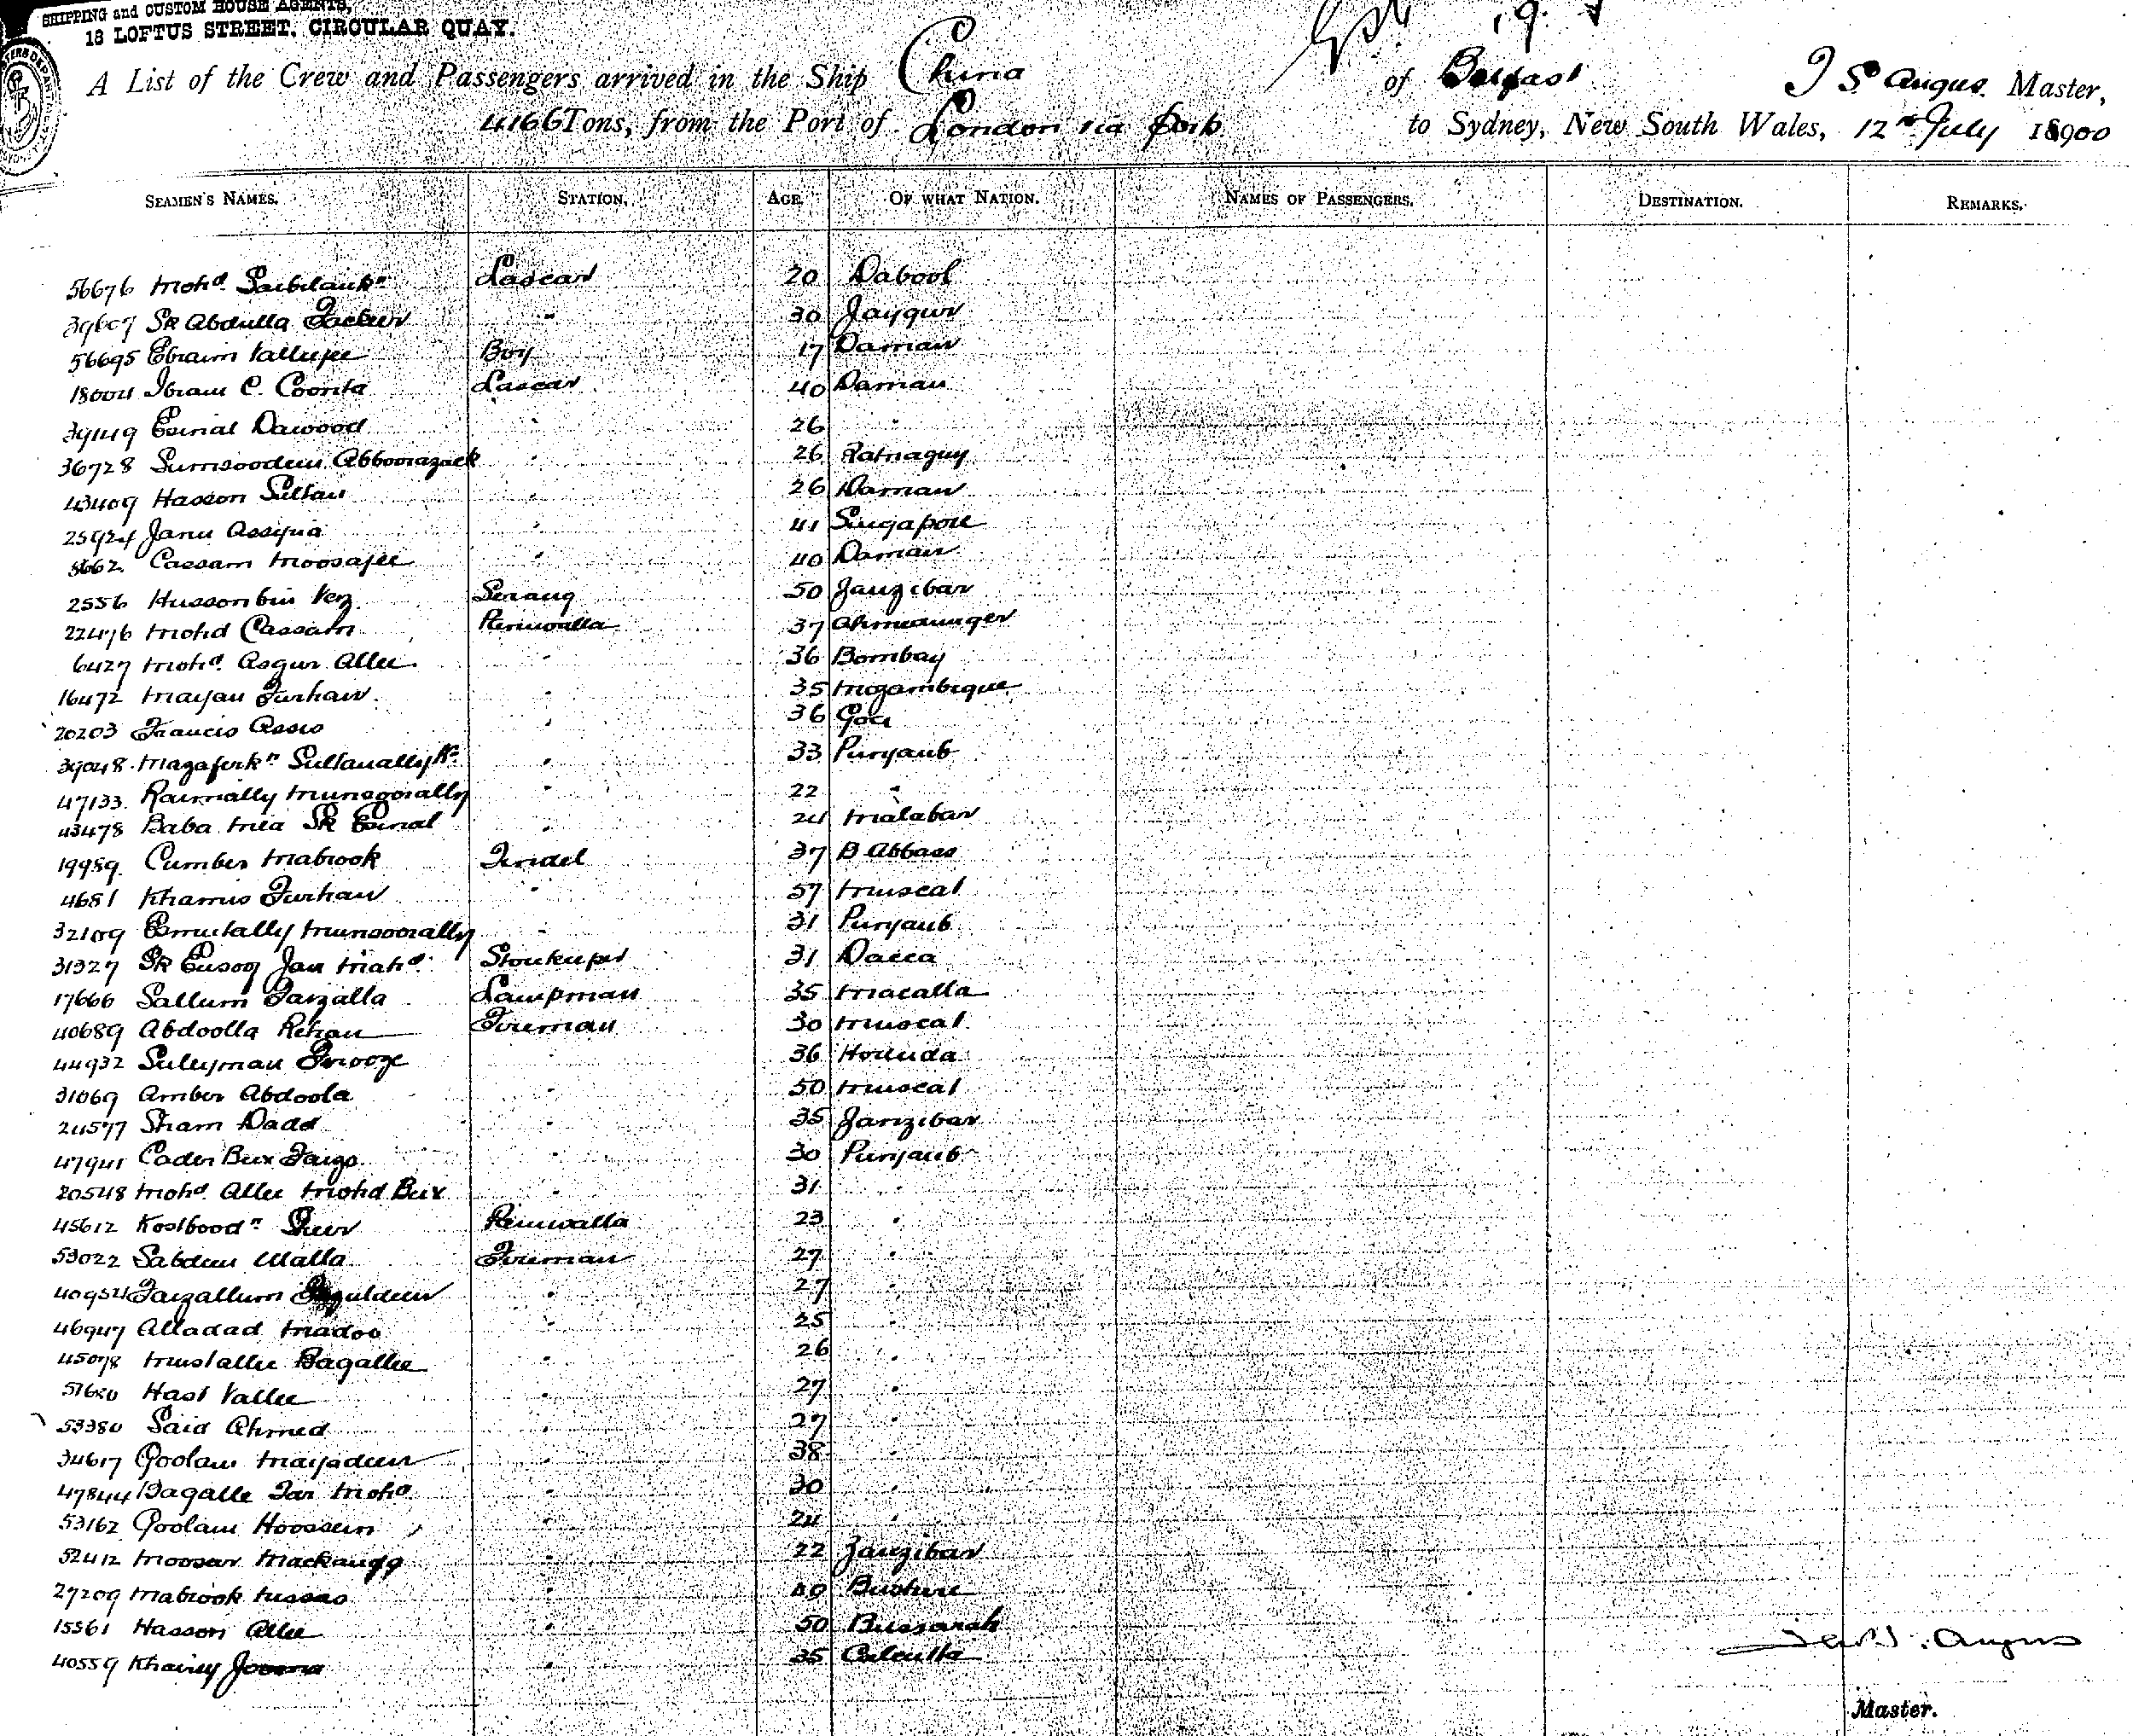 SHIPPING and CUSTOM HOUSE AGENTS,
18 LOFTUS STREET, CIRCULAR QUAY.
A List of the Crew and Passengers arrived in the Ship China of Belfast Angus Master,
4166 Tons, from the Port of London via to Sydney, New South Wales, 12th July 18900
SEAMEN'S NAMES. STATION. AGE. OF WHAT NATION. NAMES OF PASSENGERS. DESTINATION. REMARKS.
56676 Mohd. Lascar 20 Dabool
Sk Abdulla " 30 Jaygur
56695 Ebraim Valleyjee Boy 17 Daman
18004 Ibram C. Coonta Lascar 40 Daman
39149 Esmal Dawood " 26 "
36728 Sumsoodeen Abboorazack " 26 Ratnaguy
43409 Hasson Sultan " 26 Daman
25924 Janu Assyna " 41 Singapore
8662 Cassam Moosajee " 40 Daman
2556 Husson bin Serang 50 Zanzibar
22476 Mohd Cassam 37 Ahmedunger
6427 Mohd. Asgur Allee " 36 Bombay
16472 Mayan Furhan " 35 Mozambique
20203 Francis Assis " 36 Goa
39048 Mazaferkn Sultanally Kn " 33 Punjaub
47133 Raimally Munsoorally " 22 "
43478 Baba Mea Sk Esmal " 24 Malabar
19989 Cumber Mabrook Tindel 37 B Abbass
4681 Khamis Furhan " 57 Muscat
32109 Munsoorally " 31 Punjaub
31327 Sk Eusoog Jan Mahd. Storekeeper 31 Dacca
17666 Sallum Farzalla Lampman 35 Macalla
40689 Abdoolla Rehan Fireman 30 Muscat
44932 Suleyman " 36
31069 Amber Abdoola " 50 Muscat
24577 Sham Dadd " 35 Zanzibar
47941 Cader Bux " 30 Punjaub
20548 Mohd. Allee Mohd Bux " 31 "
45612 Kostboodn Sheer 23 "
53022 Sabdeen Walla Fireman 27 "
40954 Faizallum " 27 "
46947 Alladad Madoo " 25 "
45078 Mustallee Bagallee " 26 "
51620 Hast Vallee " 27 "
53380 Said Ahmed " 27 "
34617 Goolam Mayadeen " 38 "
47844 Bagalle Mohd " 30 "
53162 Goolam Hoossein " 24 "
52412 Moosar " 22 Zanzibar
27209 Mabrook " 40 Bushire
15561 Hasson Allee " 50 Bussarah
40559 Khairey Jooma " 35 Calcutta
Angus
Master.